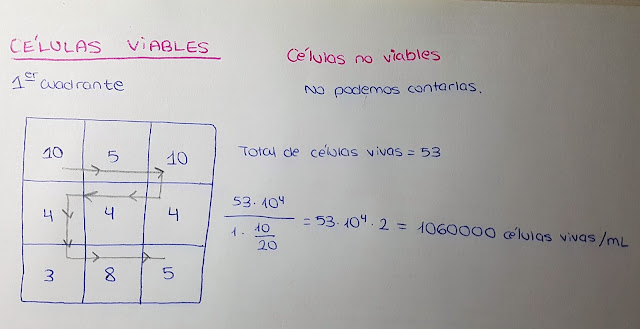 CÉLULAS VIABLES
Células no viables
1er cuadrante
No podemos contarlas.
10 5 10
4 4 4
3 8 5
Total de células vivas = 53
53·10⁴ / 1·10/20 = 53·10⁴·2 = 1060000 células vivas/mL